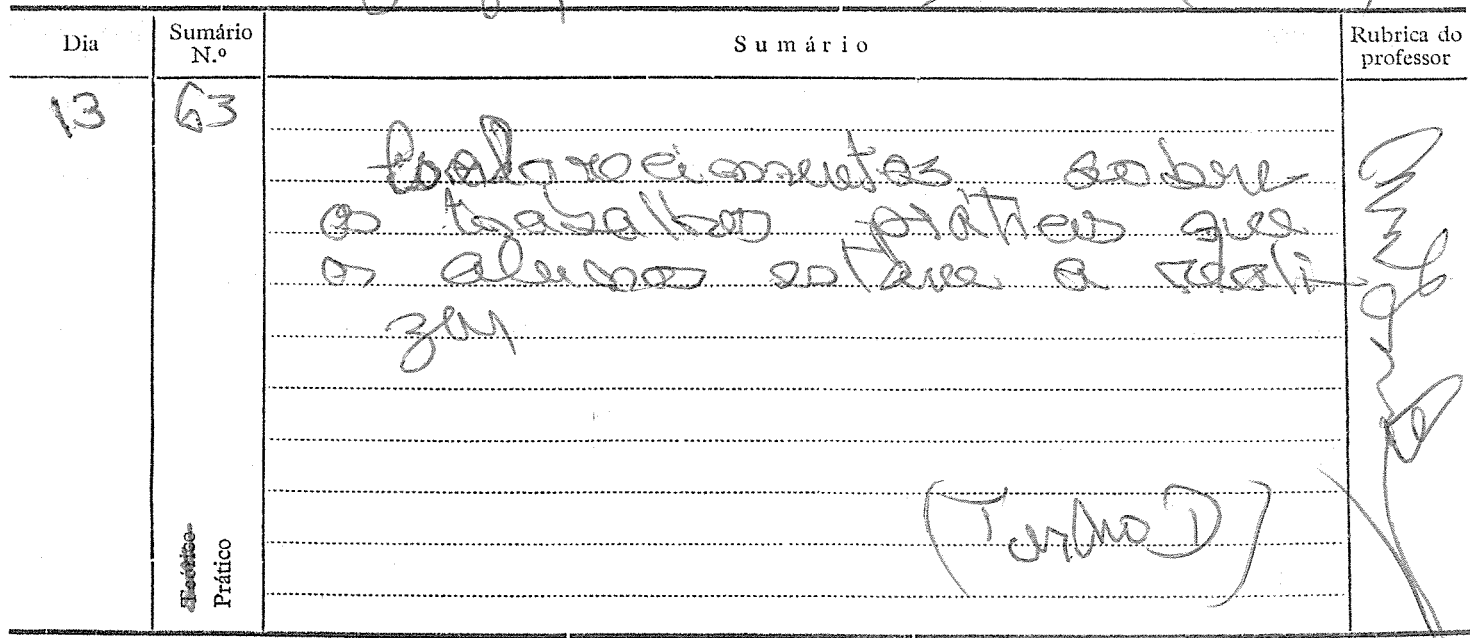 Dia
Sumário N.º
Sumário
Rubrica do professor
13
63
Esclarecimentos sobre
os trabalhos práticos que
os alunos estão a reali-
zar
(Turma D)
Teórico
Prático